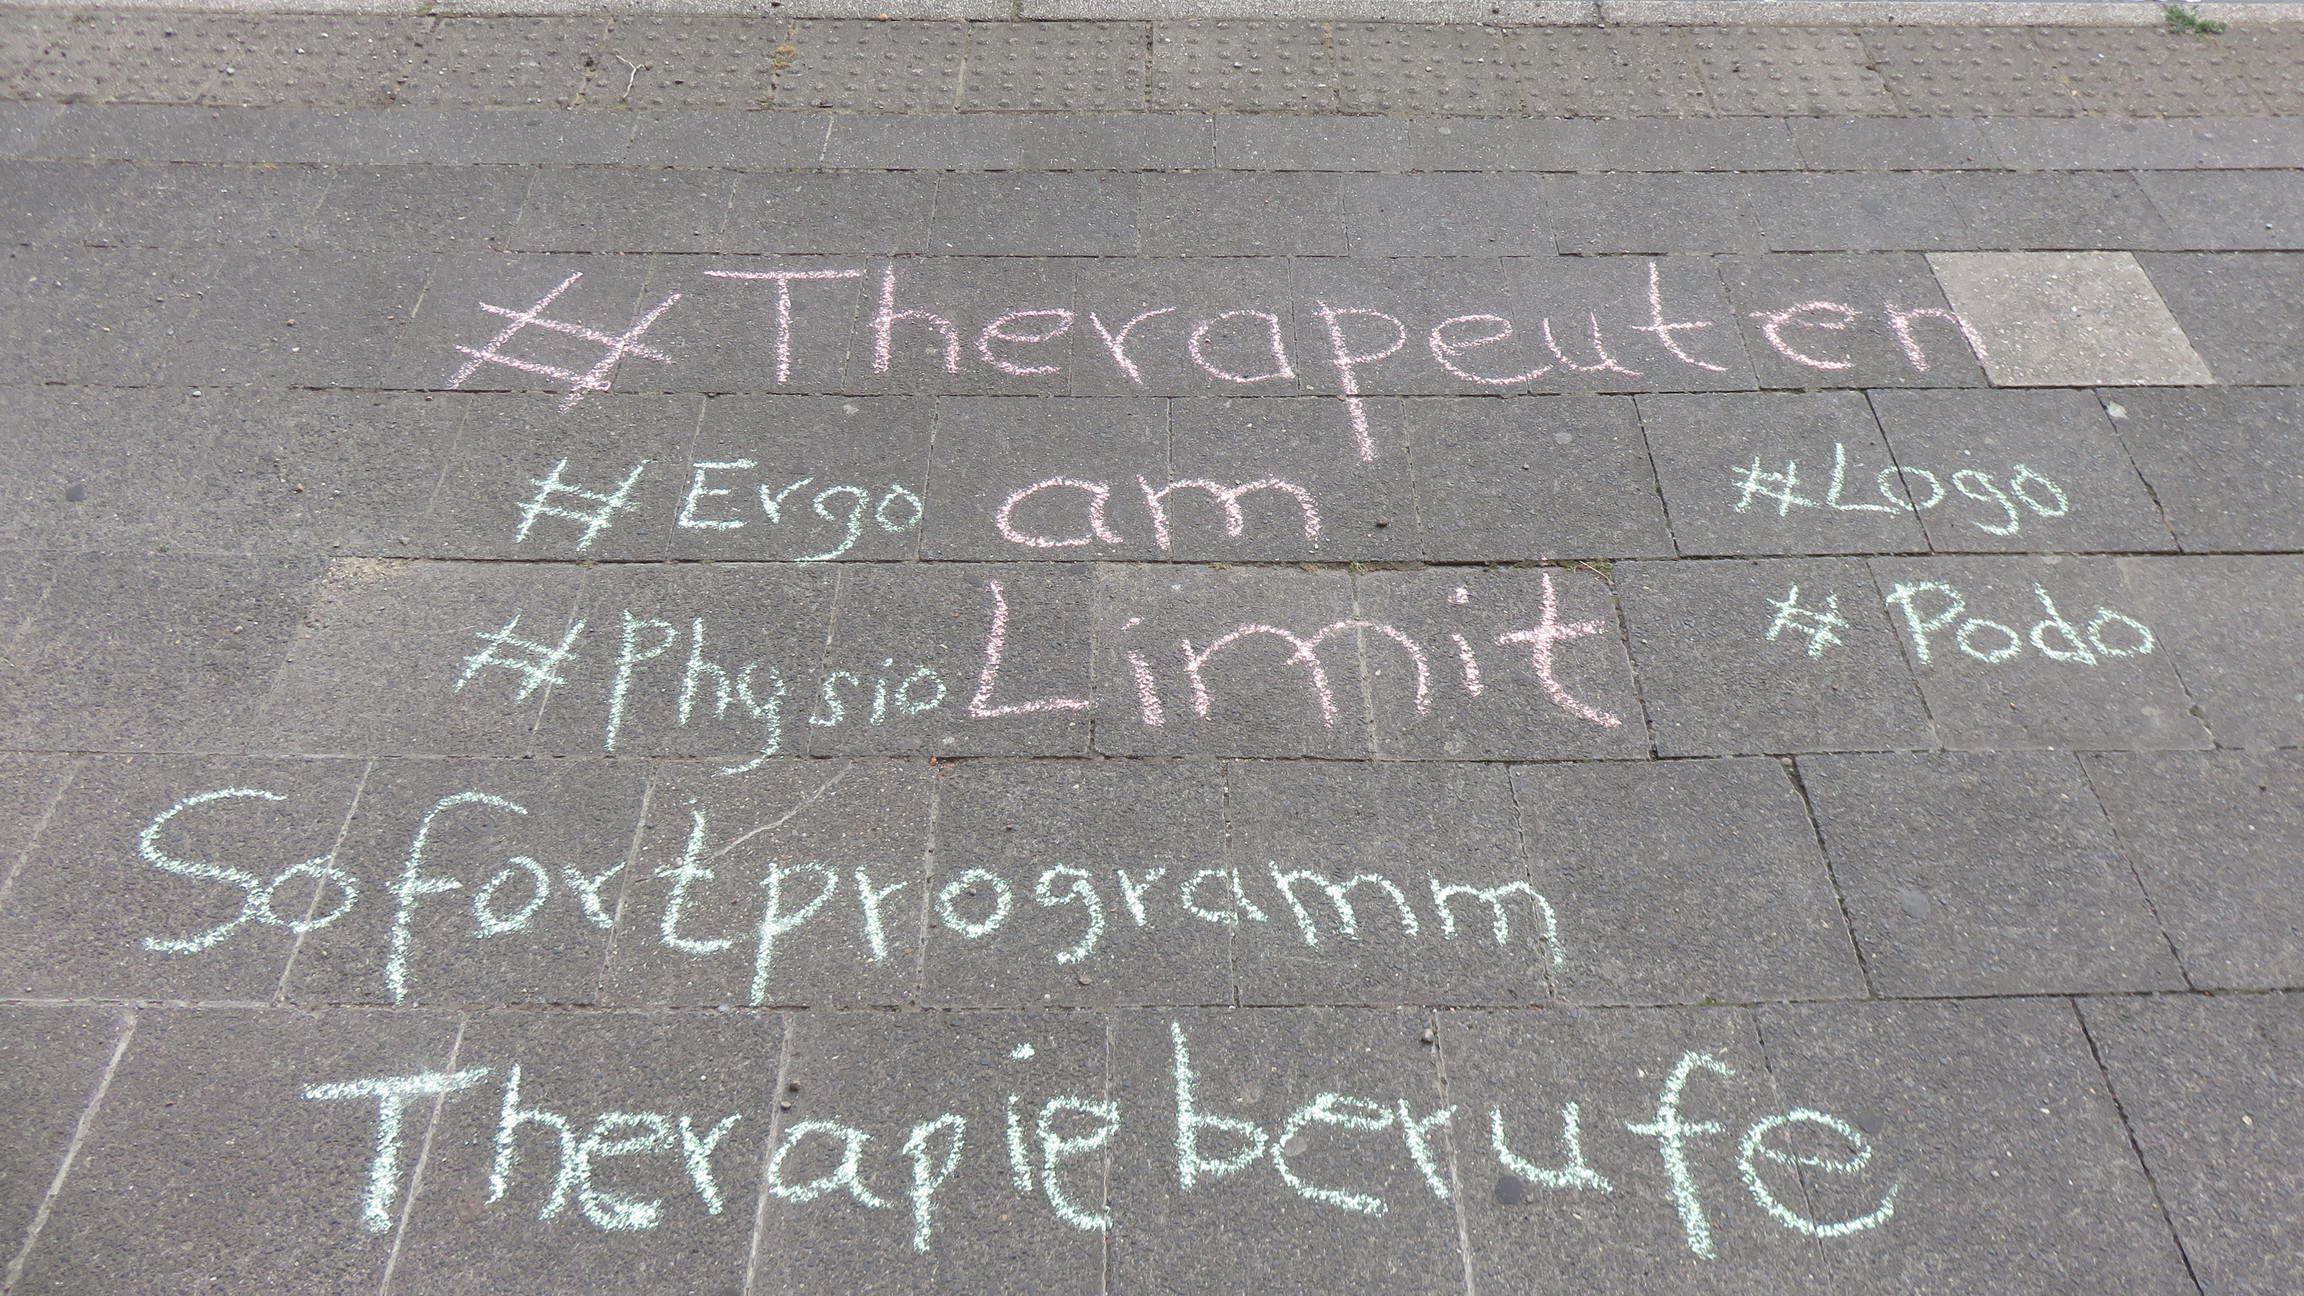 #Therapeuten
#Ergo am #Logo
#Physio Limit #Podo
Sofortprogramm
Therapieberufe